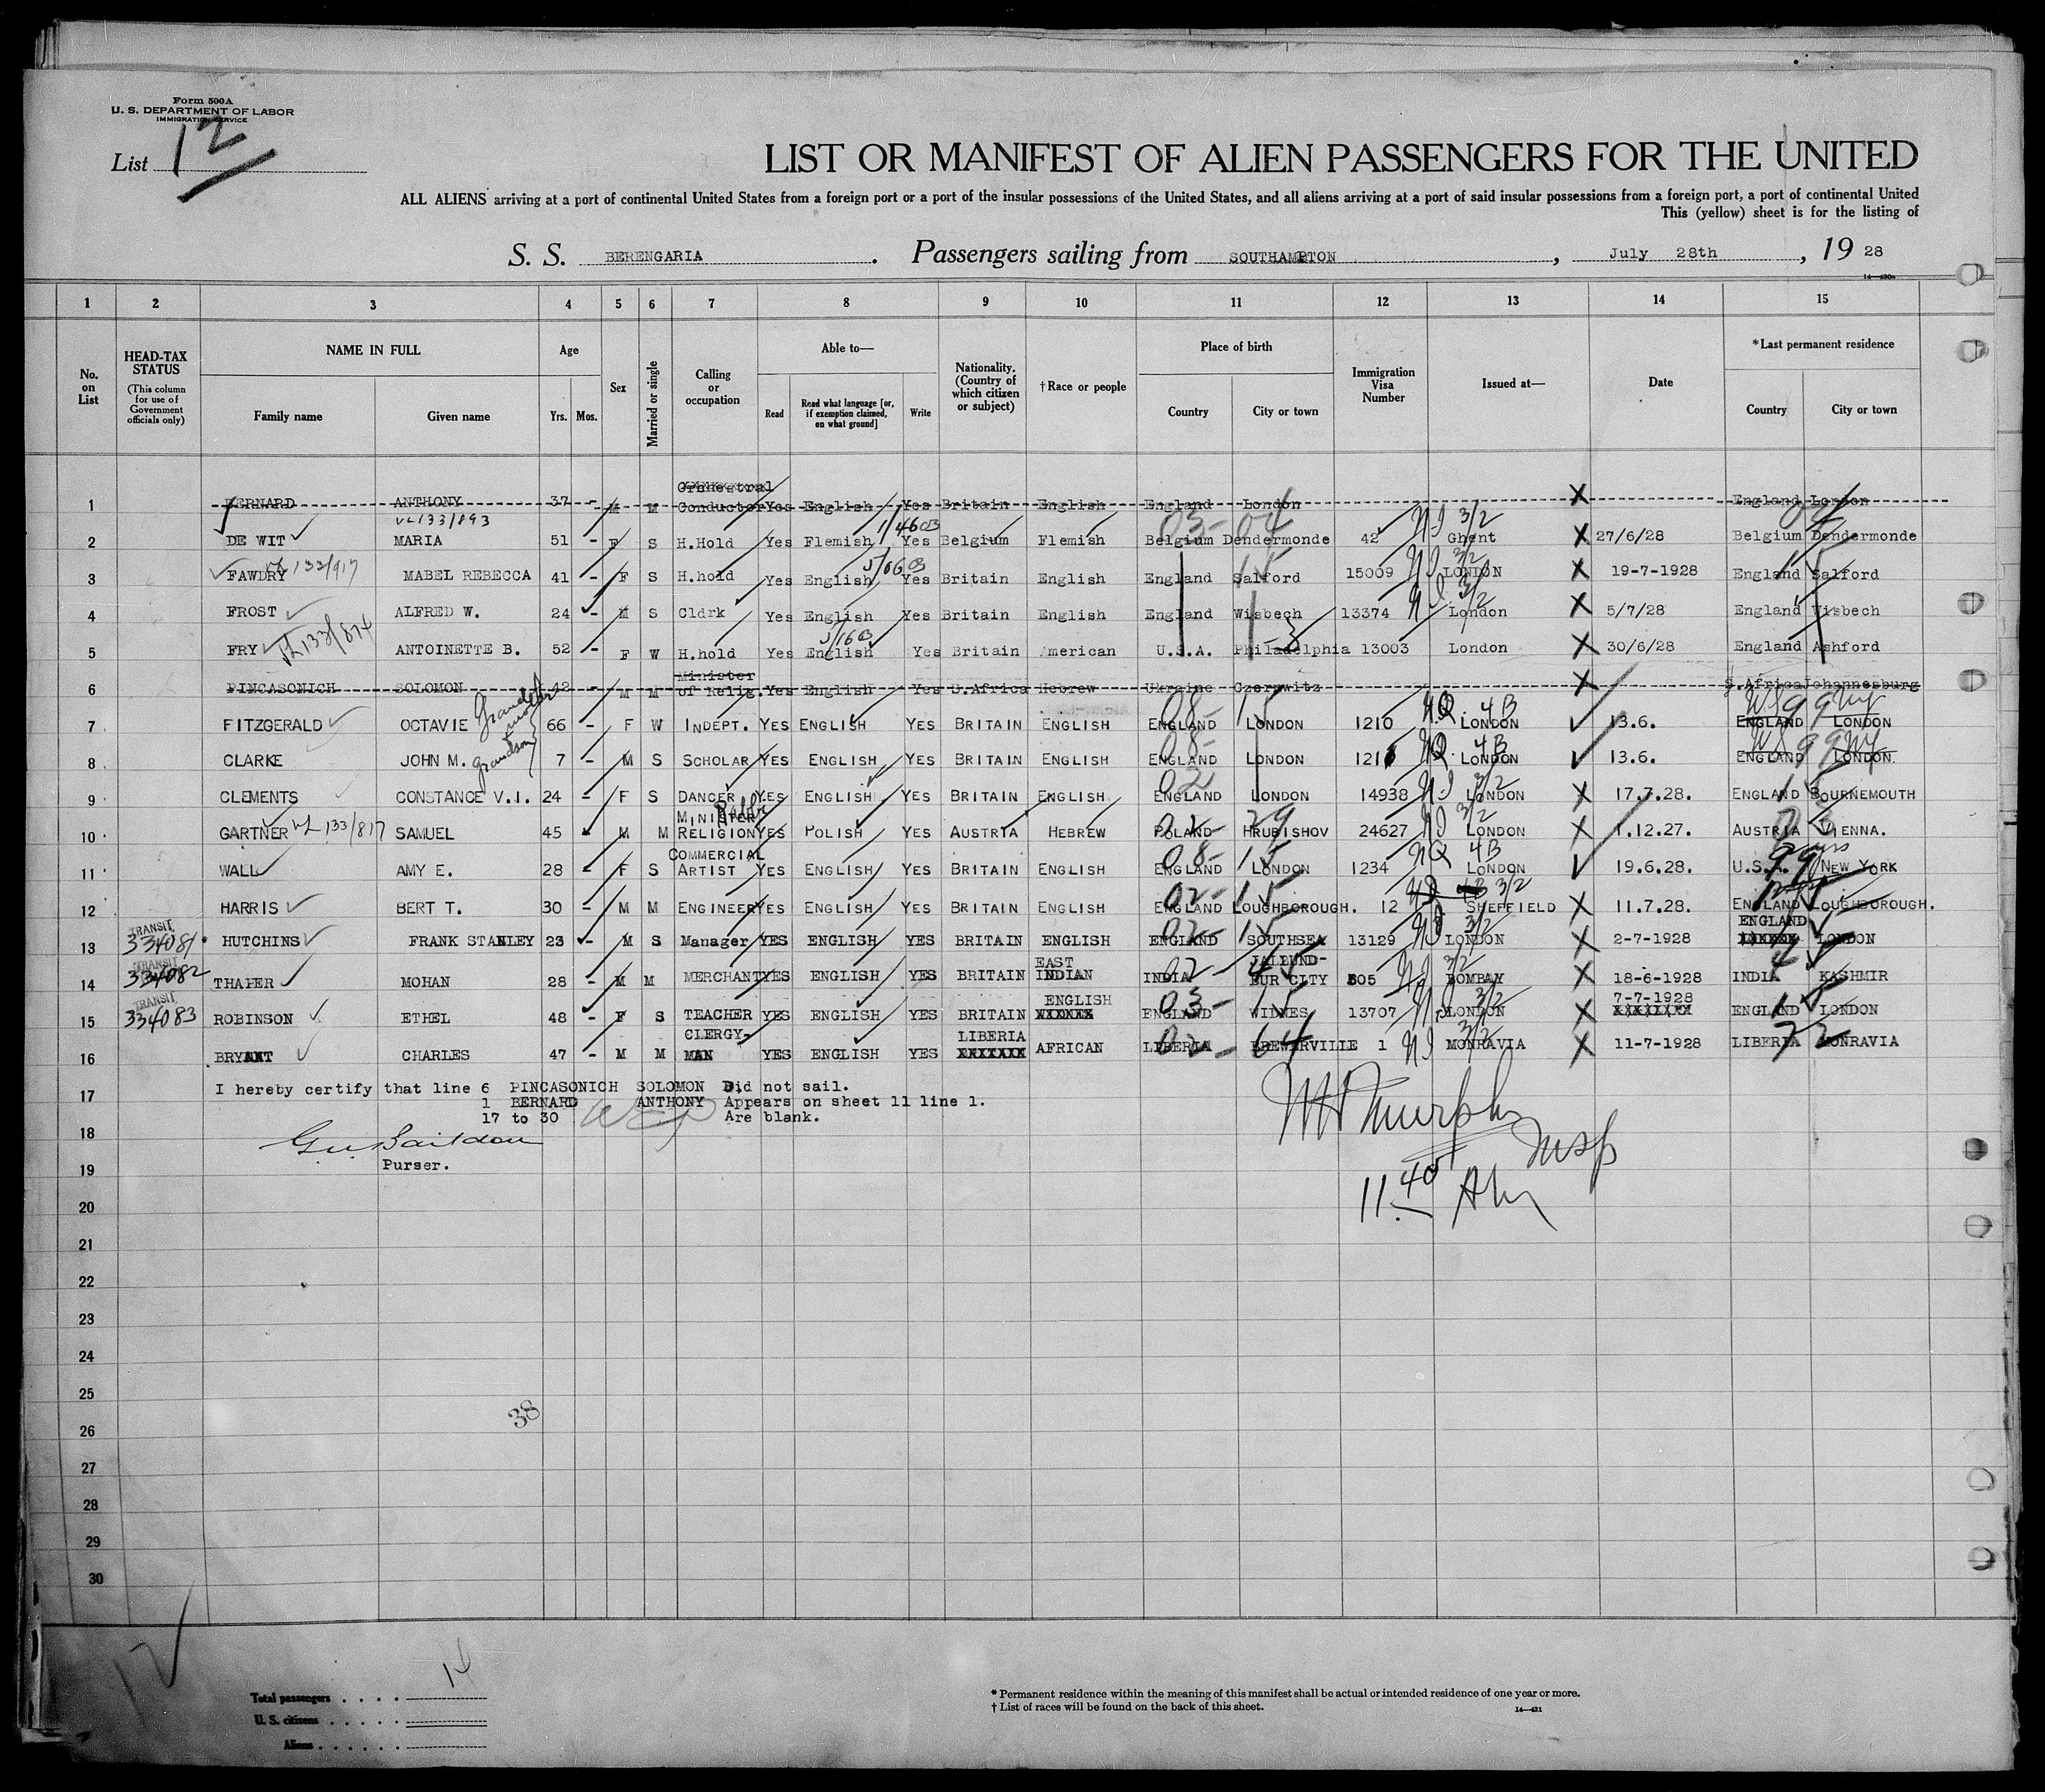 Form 500A
U. S. DEPARTMENT OF LABOR
IMMIGRATION SERVICE
List 12
LIST OR MANIFEST OF ALIEN PASSENGERS FOR THE UNITED
ALL ALIENS arriving at a port of continental United States from a foreign port or a port of the insular possessions of the United States, and all aliens arriving at a port of said insular possessions from a foreign port, a port of continental United
This (yellow) sheet is for the listing of
S. S. BERENGARIA. Passengers sailing from SOUTHAMPTON, July 28th, 19 28
14—430a
1 2 3 4 5 6 7 8 9 10 11 12 13 14 15
No. on List
HEAD-TAX STATUS (This column for use of Government officials only)
NAME IN FULL
Family name Given name
Age
Yrs. Mos.
Sex
Married or single
Calling or occupation
Able to—
Read Read what language [or, if exemption claimed, on what ground] Write
Nationality. (Country of which citizen or subject)
† Race or people
Place of birth
Country City or town
Immigration Visa Number
Issued at—
Date
*Last permanent residence
Country City or town
1 BERNARD ANTHONY 37 - M M Orchestral Conductor Yes English Yes Britain English England London X England London
VL133/893
2 DE WIT MARIA 51 - F S H.Hold Yes Flemish Yes Belgium Flemish Belgium Dendermonde 42 Ghent X 27/6/28 Belgium Dendermonde
3 FAWDRY 133/917 MABEL REBECCA 41 - F S H.hold Yes English Yes Britain English England Salford 15009 LONDON X 19-7-1928 England Salford
4 FROST ALFRED W. 24 M S Cldrk Yes English Yes Britain English England Wisbech 13374 London X 5/7/28 England Wisbech
5 FRY 133/874 ANTOINETTE B. 52 - F W H.hold Yes English Yes Britain American U.S.A. Philadelphia 13003 London X 30/6/28 England Ashford
6 PINCASONICH SOLOMON 42 - M M Minister of Relig. Yes English Yes S.Africa Hebrew Ukraine Czernwitz X S.Africa Johannesburg
7 FITZGERALD OCTAVIE Grandmother 66 - F W INDEPT. YES ENGLISH YES BRITAIN ENGLISH ENGLAND LONDON 1210 LONDON 13.6. ENGLAND LONDON
8 CLARKE JOHN M. grandson 7 - M S SCHOLAR YES ENGLISH YES BRITAIN ENGLISH ENGLAND LONDON 1211 LONDON 13.6. ENGLAND LONDON.
9 CLEMENTS CONSTANCE V.I. 24 - F S DANCER YES ENGLISH YES BRITAIN ENGLISH ENGLAND LONDON 14938 LONDON X 17.7.28. ENGLAND BOURNEMOUTH
10 GARTNER 133/817 SAMUEL 45 M M MINISTER RELIGION Rabbi YES POLISH YES AUSTRIA HEBREW POLAND HRUBISHOV 24627 LONDON X 1.12.27. AUSTRIA VIENNA.
11 WALL AMY E. 28 - F S COMMERCIAL ARTIST YES ENGLISH YES BRITAIN ENGLISH ENGLAND LONDON 1234 LONDON 19.6.28. U.S.A. NEW YORK
12 HARRIS BERT T. 30 - M M ENGINEER YES ENGLISH YES BRITAIN ENGLISH ENGLAND LOUGHBOROUGH. 12 SHEFFIELD X 11.7.28. ENGLAND LOUGHBOROUGH.
13 TRANSIT 334081 HUTCHINS FRANK STANLEY 23 - M S Manager YES ENGLISH YES BRITAIN ENGLISH ENGLAND SOUTHSEA 13129 LONDON X 2-7-1928 ENGLAND LONDON
14 TRANSIT 334082 THAPER MOHAN 28 - M M MERCHANT YES ENGLISH YES BRITAIN EAST INDIAN INDIA JALLUND-PUR CITY 505 BOMBAY X 18-6-1928 INDIA KASHMIR
15 TRANSIT 334083 ROBINSON ETHEL 48 - F S TEACHER YES ENGLISH YES BRITAIN ENGLISH ENGLAND WIDNES 13707 LONDON X 7-7-1928 ENGLAND LONDON
16 BRYANT CHARLES 47 - M M CLERGY-MAN YES ENGLISH YES LIBERIA AFRICAN LIBERIA BREWERVILLE 1 MONRAVIA X 11-7-1928 LIBERIA MONRAVIA
17 I hereby certify that line 6 PINCASONICH SOLOMON Did not sail.
1 BERNARD ANTHONY Appears on sheet 11 line 1.
17 to 30 Are blank.
18
Purser.
19
Murphy
Insp
11.40 AM
20
21
22
23
24
25
38
26
27
28
29
30
Total passengers . . . . 14
U. S. citizens . . . . .
Aliens . . . . . .
* Permanent residence within the meaning of this manifest shall be actual or intended residence of one year or more.
† List of races will be found on the back of this sheet.
14—431